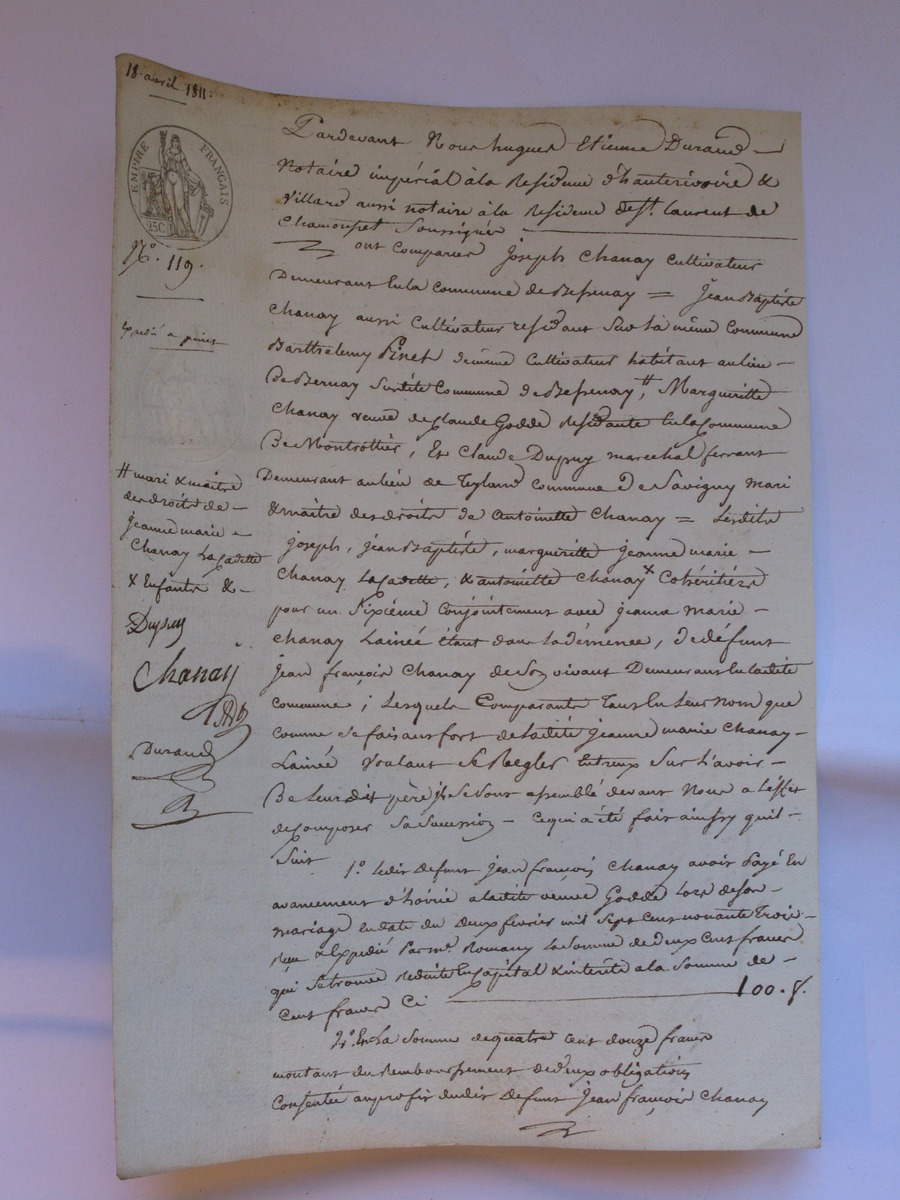 18. avril 1811.
EMPIRE FRANÇAIS
25C.
N.º 119.
Expédié a pinet
# mari & maître
des droits de
jeanne marie
Chanay La Cadette
& Enfants &
Dupuy
Chanay
Durand
Pardevant Nous hugues Etienne Durand
Notaire impérial à la Residence d'hauterivoire &
Villard aussi notaire à la Residence de St. Laurent de
Chamousset Soussignés
ont comparu Joseph Chanay Cultivateur
Demeurant En la Commune de Bessenay = Jean Baptiste
Chanay aussi Cultivateur residant Sur la même Commune
Barthelemy Pinet Cultivateur habitant au lieu
de Bernay Sur dite Commune de Bessenay, # Margueritte
Chanay veuve de Claude Godde residante En la Commune
De Montrottier, Et Claude Dupuy marechal ferrant
Demeurant au lieu de Teyland Commune de Savigny mari
& maître des droits de Antoinette Chanay = Lesdits
joseph, jean Baptiste, margueritte jeanne marie
Chanay La Cadette, & antoinette Chanay Cohéritiers
pour un Sixième Conjointement avec jeanne marie
Chanay Lainée étant dans la démence, de défunt
jean françois Chanay de Son vivant Demeurant En ladite
Commune ; Lesquels Comparants Tous En Leur Nom que
Comme Se faisant fort de ladite jeanne marie Chanay
Lainée Voulant Se Regler Entreux Sur L'avoir
De Leur dit père ils Se Sont assemblé devant Nous a L'effet
de Composer Sa Succession - Ce qui a été fait ainsy quil
Suit
1.º Ledit Defunt jean françois Chanay avoit Payé En
avancement d'hoirie a ladite veuve Godde Lors de Son
mariage En date du Deux fevrier mil Sept Cent nonante Trois
Reçu & Expédié Par me. Romany La Somme de Deux Cent francs
qui Se trouve Reduite En Capital & interêts a la Somme de
Cent francs Ci 100. f.
2.º En La Somme de quatre Cent douze francs
montant du Remboursement de Deux obligations
Consentie au profit dudit Defunt Jean françois Chanay